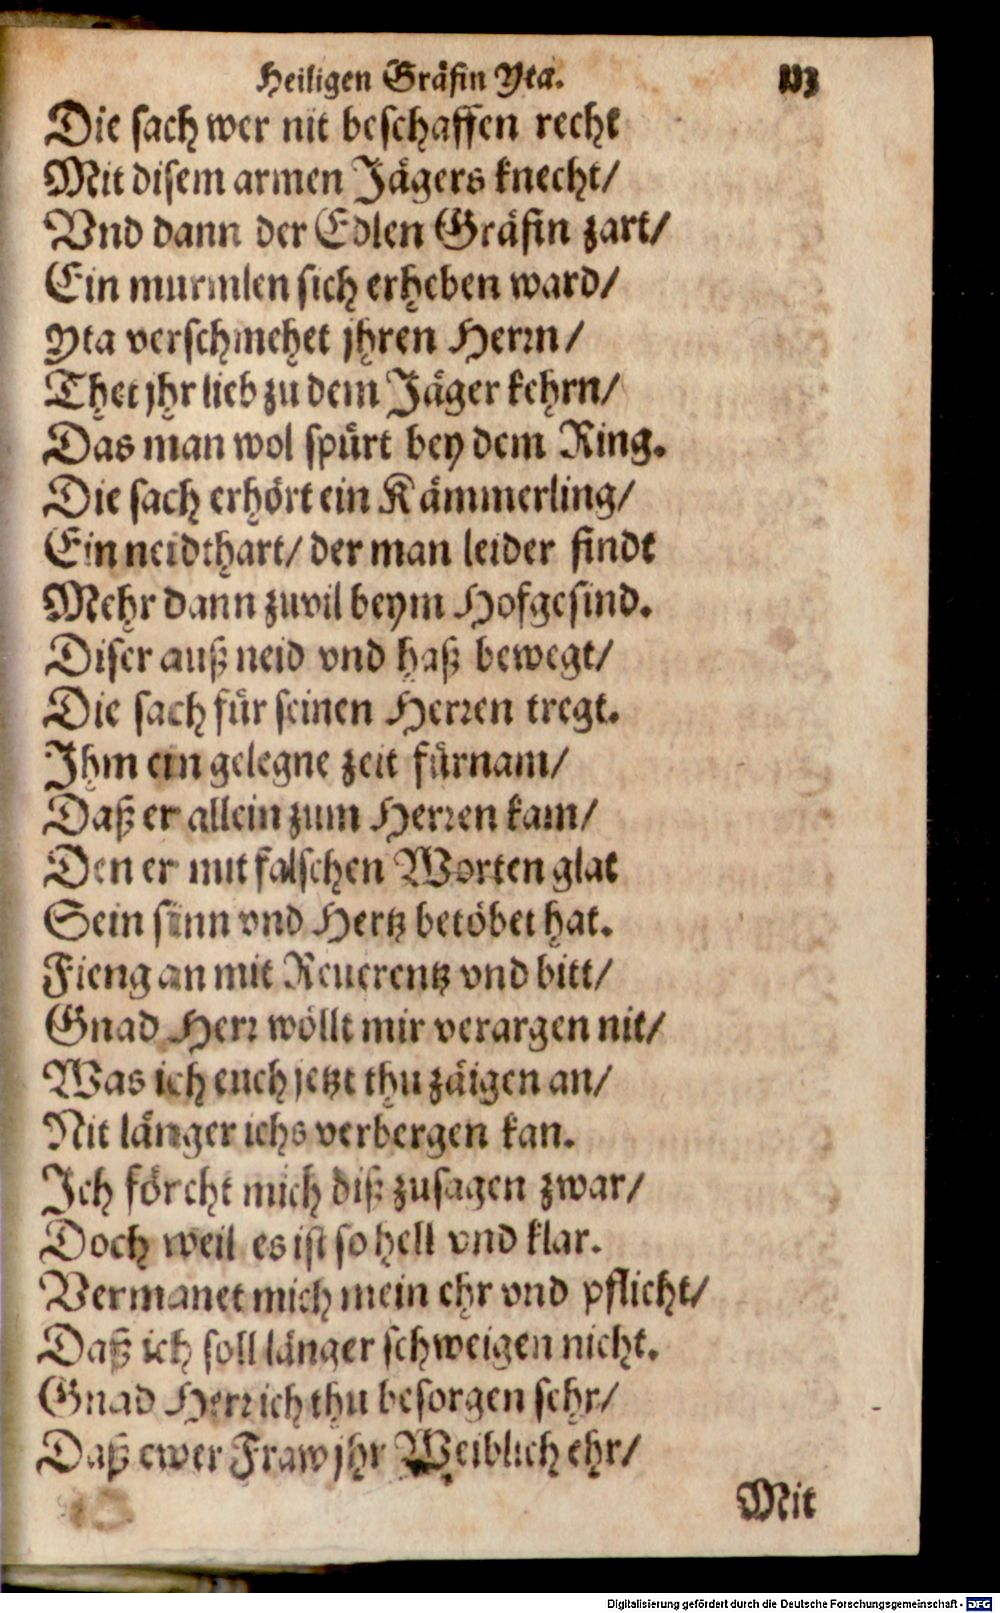 Heiligen Gräfin Yta.
Die sach wer nit beschaffen recht
Mit disem armen Jägers knecht/
Vnd dann der Edlen Gräfin zart/
Ein murmlen sich erheben ward/
Yta verschmehet jhren Herrn/
Thet jhr lieb zu dem Jäger kehrn/
Das man wol spürt bey dem Ring.
Die sach erhört ein Kämmerling/
Ein neidthart/ der man leider findt
Mehr dann zuvil beym Hofgesind.
Diser auß neid vnd haß bewegt/
Die sach für seinen Herren tregt.
Ihm ein gelegne zeit fürnam/
Daß er allein zum Herren kam/
Den er mit falschen Worten glat
Sein sinn vnd Hertz betöbet hat.
Fieng an mit Reuerentz vnd bitt/
Gnad Herr wöllt mir verargen nit/
Was ich euch jetzt thu zäigen an/
Nit länger ichs verbergen kan.
Ich förcht mich diß zusagen zwar/
Doch weil es ist so hell vnd klar.
Vermanet mich mein ehr vnd pflicht/
Daß ich soll länger schweigen nicht.
Gnad Herr ich thu besorgen sehr/
Daß ewer Fraw jhr Weiblich ehr/
Mit
Digitalisierung gefördert durch die Deutsche Forschungsgemeinschaft - DFG